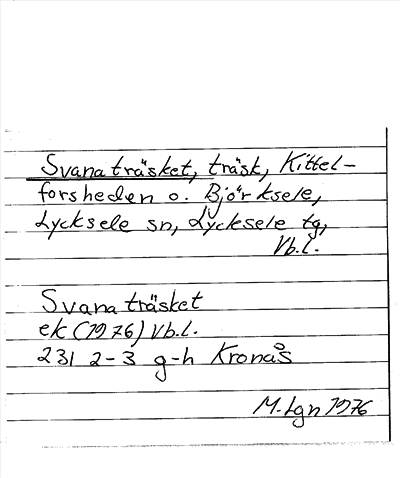 Svanaträsket, träsk, Kittel-
forsheden o. Björksele,
Lycksele sn, Lycksele tg,
Vb.l.
Svanaträsket
ek (1976) Vb.l.
231 2-3 g-h Kronås
M.Lgn 1976